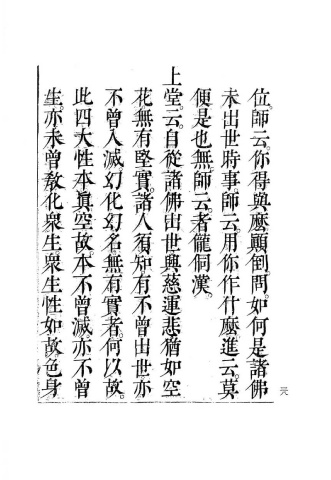 位師云你得與麼顛倒問如何是諸佛
未出世時事師云用你作什麼進云莫
便是也無師云者儱侗漢
上堂云自從諸佛出世興慈運悲猶如空
花無有堅實諸人須知有不曾出世亦
不曾入滅幻化幻名無有實者何以故
此四大性本眞空故本不曾滅亦不曾
生亦未曾敎化衆生衆生性如故色身